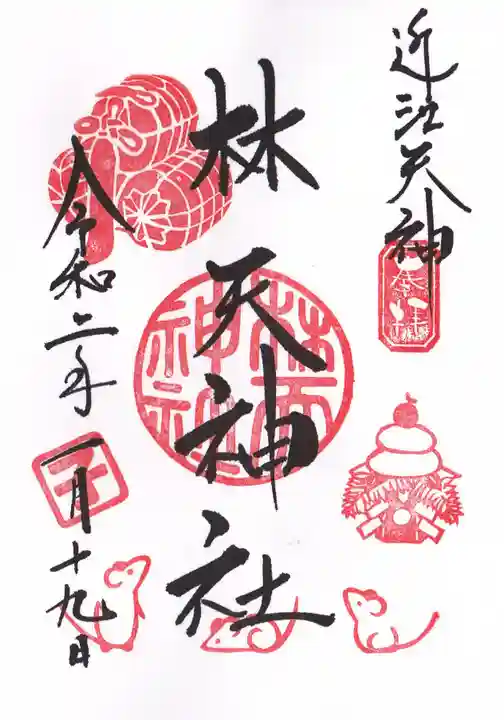 近江天神
奉拝
林天神社
林天神社
令和二年
一月十九日
子